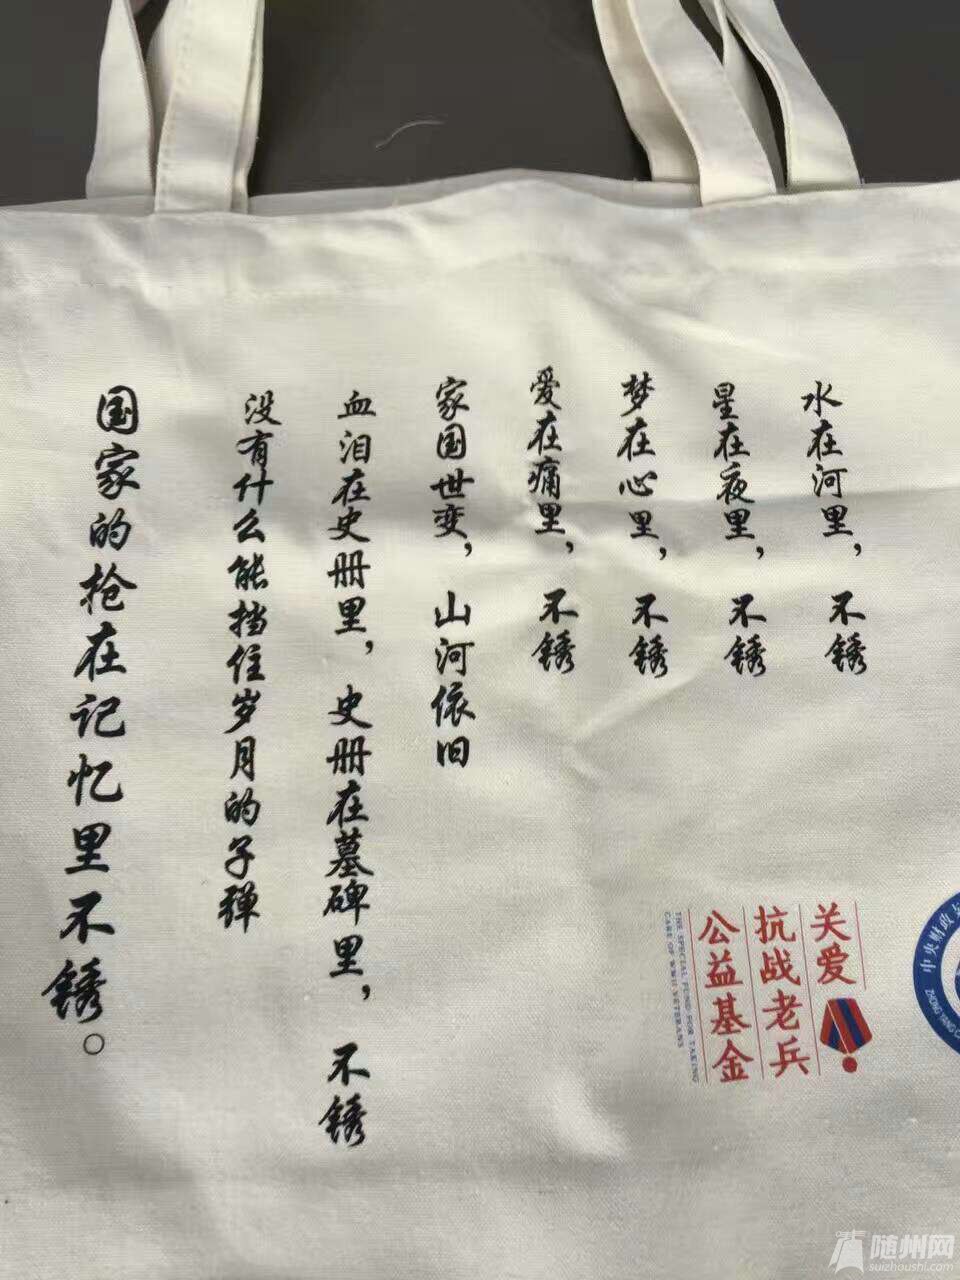 水在河里，不锈
星在夜里，不锈
梦在心里，不锈
爱在痛里，不锈
家国世变，山河依旧
血泪在史册里，史册在墓碑里，不锈
没有什么能挡住岁月的子弹
国家的枪在记忆里不锈。
关爱
抗战老兵
公益基金
THE SPECIAL FUND FOR TAKING
CARE OF WWII VETERANS
中央财政
随州网
suizhoushi.com